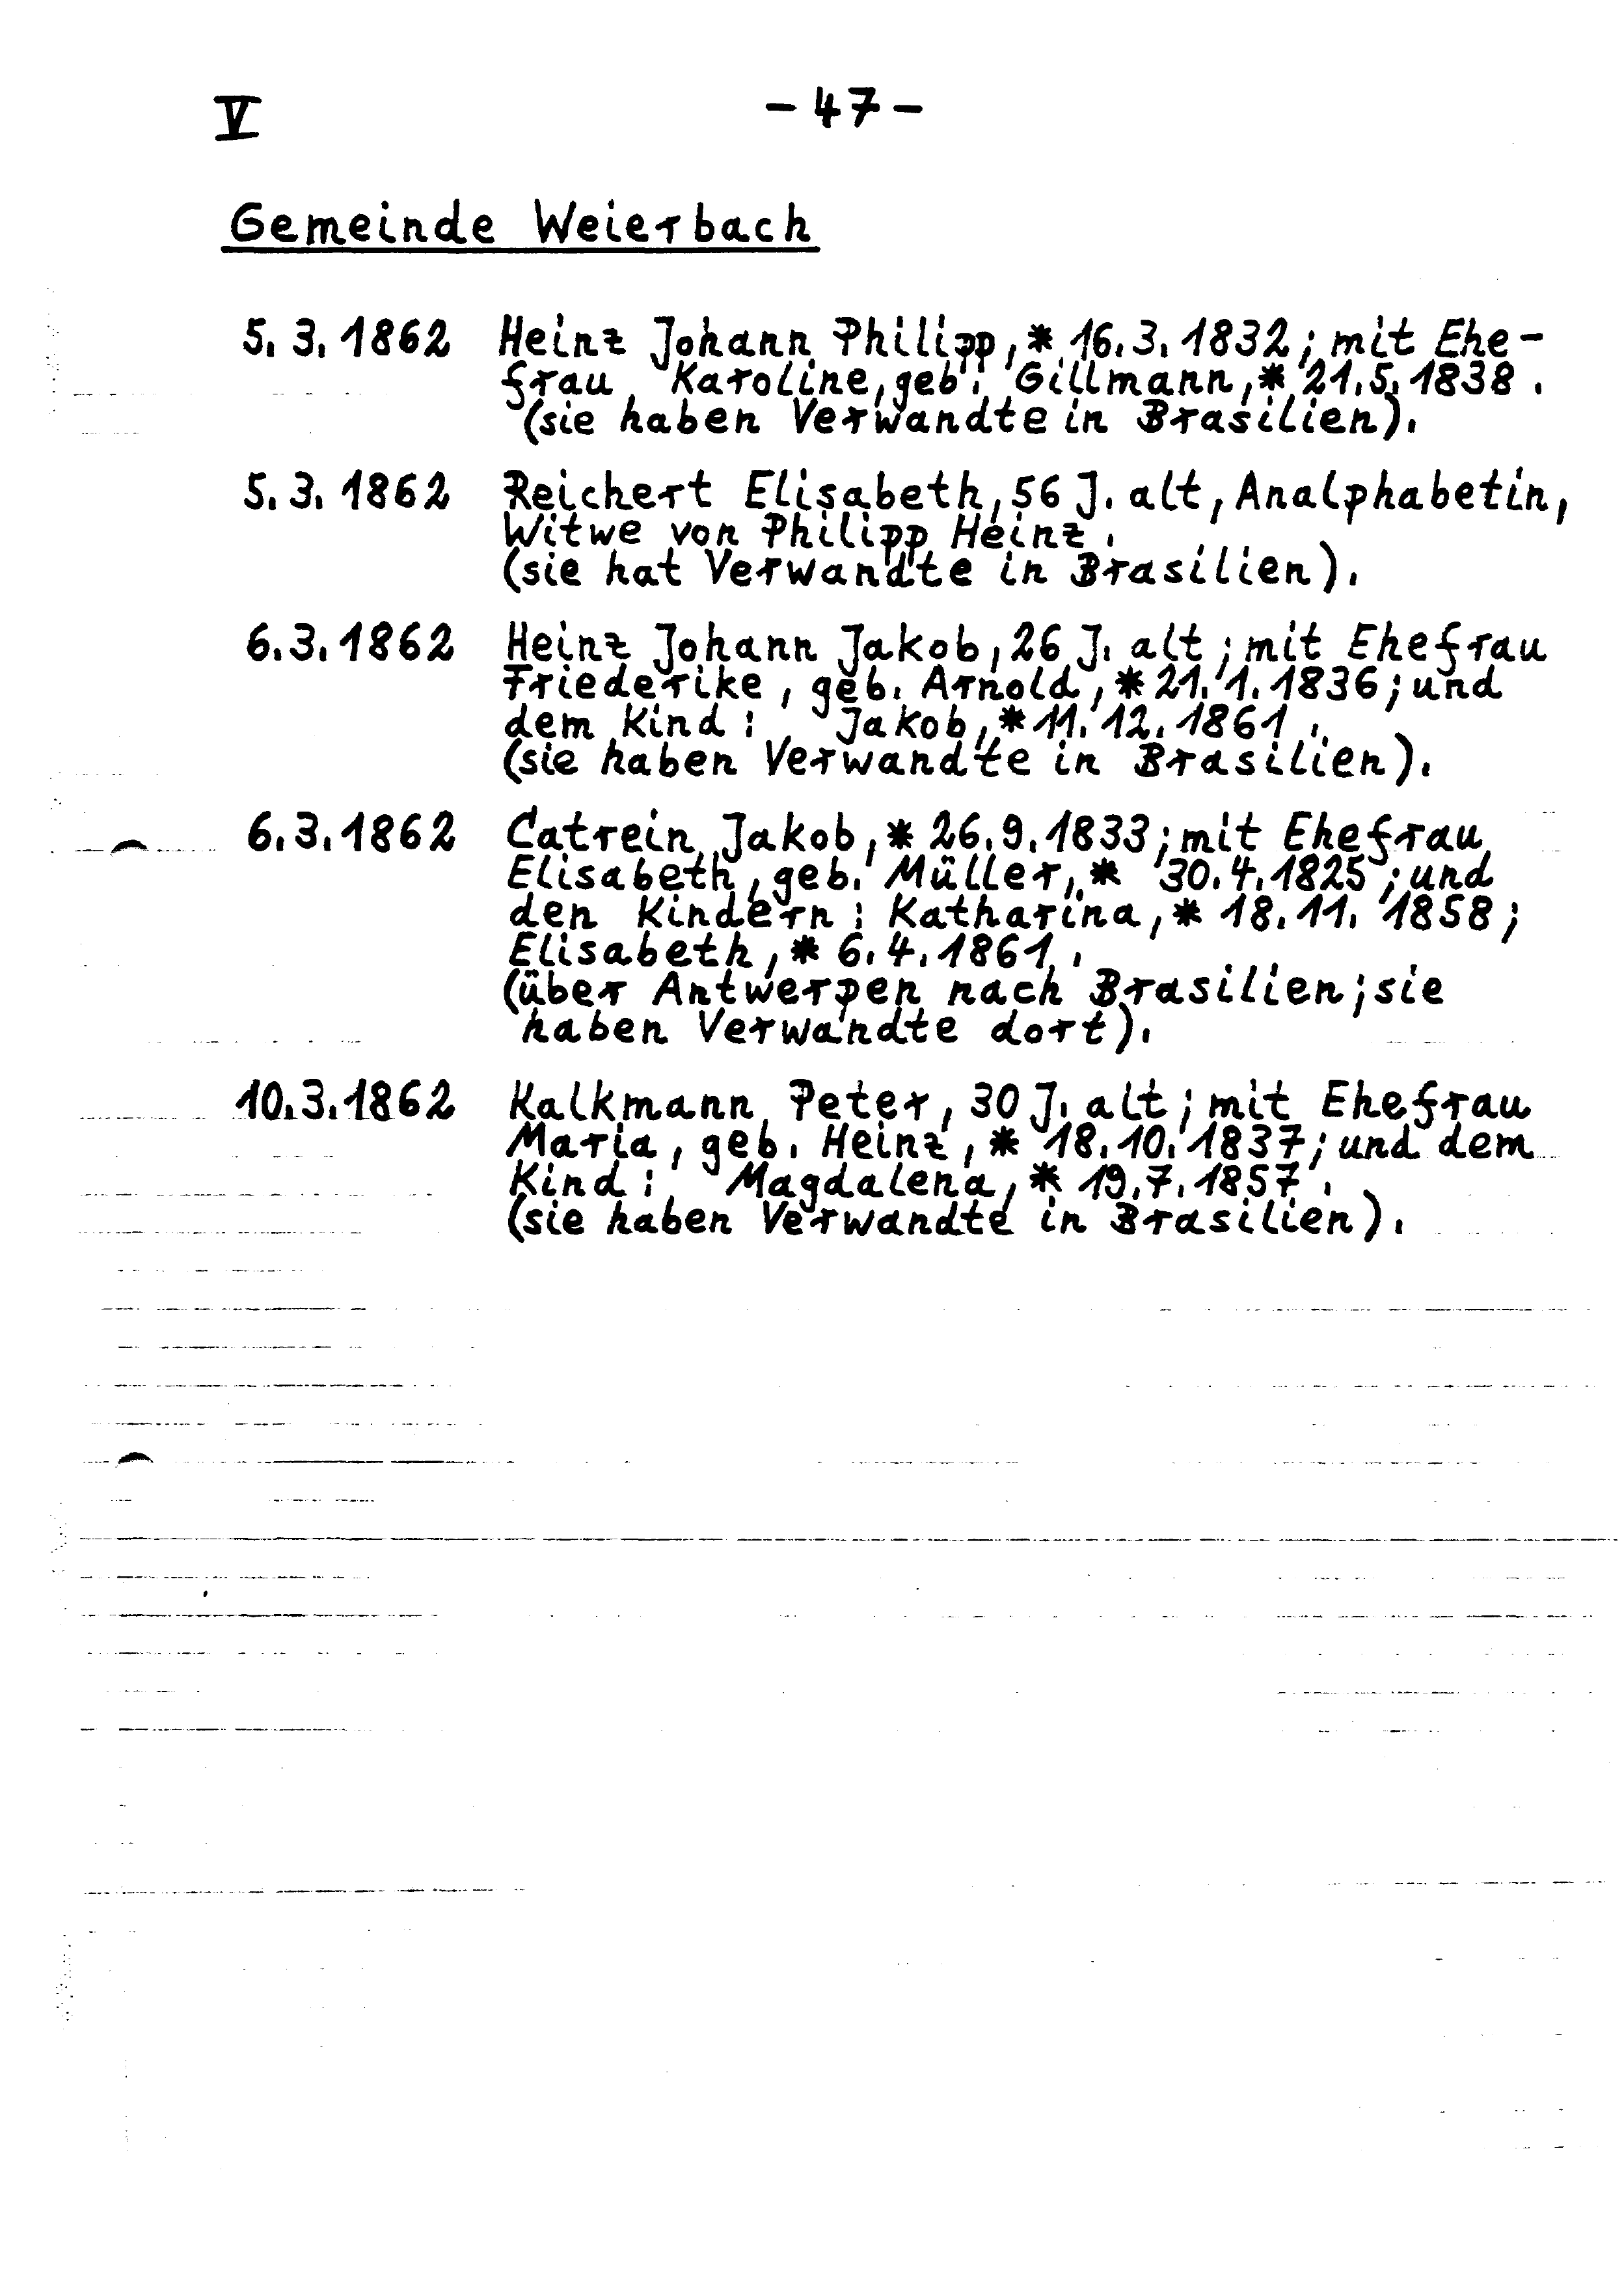 V - 47 -
Gemeinde Weierbach
5. 3. 1862 Heinz Johann Philipp, * 16. 3. 1832; mit Ehe-
frau Karoline, geb. Gillmann, * 21. 5. 1838.
(sie haben Verwandte in Brasilien).
5. 3. 1862 Reichert Elisabeth, 56 J. alt, Analphabetin,
Witwe von Philipp Heinz.
(sie hat Verwandte in Brasilien).
6. 3. 1862 Heinz Johann Jakob, 26 J. alt; mit Ehefrau
Friederike, geb. Arnold, * 21. 1. 1836; und
dem Kind: Jakob, * 11. 12. 1861.
(sie haben Verwandte in Brasilien).
6. 3. 1862 Catrein Jakob, * 26. 9. 1833; mit Ehefrau
Elisabeth, geb. Müller, * 30. 4. 1825; und
den Kindern: Katharina, * 18. 11. 1858;
Elisabeth, * 6. 4. 1861.
(über Antwerpen nach Brasilien; sie
haben Verwandte dort).
10. 3. 1862 Kalkmann Peter, 30 J. alt; mit Ehefrau
Maria, geb. Heinz, * 18. 10. 1837; und dem
Kind: Magdalena, * 19. 7. 1857.
(sie haben Verwandte in Brasilien).